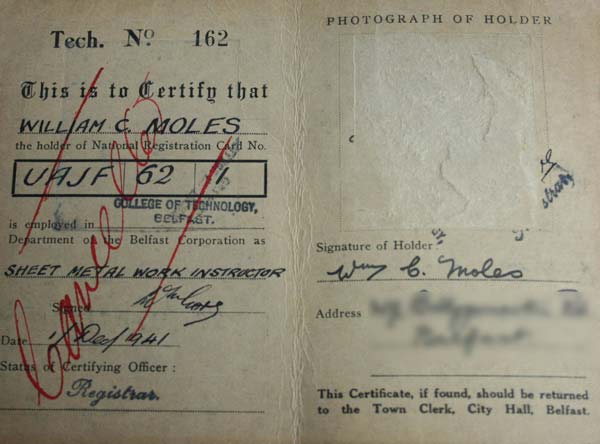 Tech. No 162
This is to Certify that
WILLIAM C. MOLES
the holder of National Registration Card No.
UAJF 62 1
COLLEGE OF TECHNOLOGY,
BELFAST.
is employed in
Department of the Belfast Corporation as
SHEET METAL WORK INSTRUCTOR
Signed
Date 1/Dec/1941
Status of Certifying Officer :
Registrar.
Cancelled
PHOTOGRAPH OF HOLDER
Signature of Holder
Wm C. Moles
Address
Belfast
This Certificate, if found, should be returned
to the Town Clerk, City Hall, Belfast.